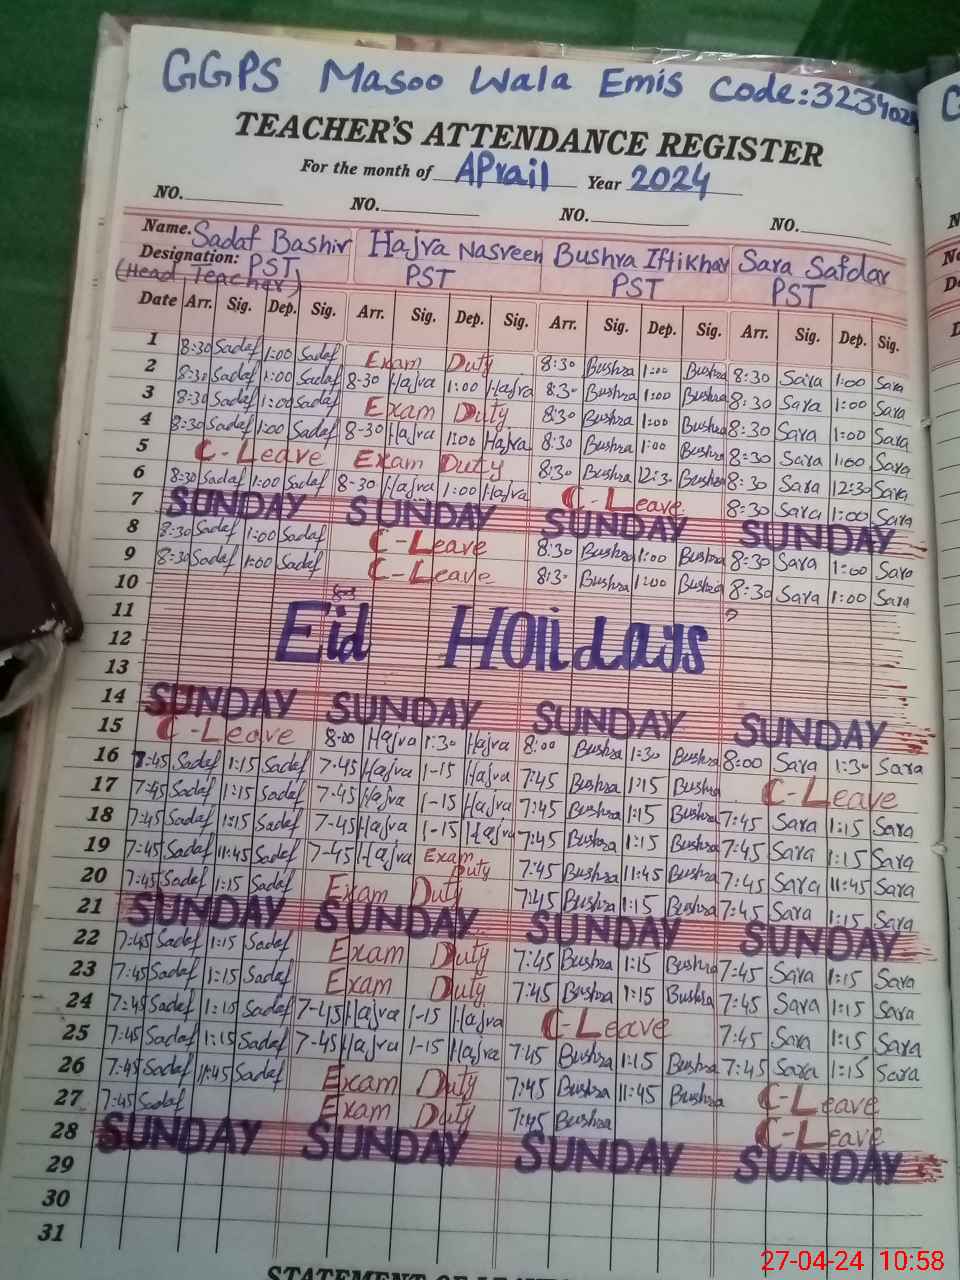 GGPS Masoo Wala Emis Code:3234028
TEACHER'S ATTENDANCE REGISTER
For the month of APrail Year 2024
NO. NO. NO. NO.
Name. Sadaf Bashir Hajra Nasreen Bushra Iftikhar Sara Safdar
Designation: PST PST PST PST
(Head Teacher)
Date Arr. Sig. Dep. Sig. Arr. Sig. Dep. Sig. Arr. Sig. Dep. Sig. Arr. Sig. Dep. Sig.
1 8:30 Sadaf 1:00 Sadaf Exam Duty 8:30 Bushra 1:00 Bushra 8:30 Sara 1:00 Sara
2 8:30 Sadaf 1:00 Sadaf 8-30 Hajra 1:00 Hajra 8:30 Bushra 1:00 Bushra 8:30 Sara 1:00 Sara
3 8:30 Sadaf 1:00 Sadaf Exam Duty 8:30 Bushra 1:00 Bushra 8:30 Sara 1:00 Sara
4 8:30 Sadaf 1:00 Sadaf 8-30 Hajra 1:00 Hajra 8:30 Bushra 1:00 Bushra 8:30 Sara 1:00 Sara
5 C-Leave Exam Duty 8:30 Bushra 12:30 Bushra 8:30 Sara 12:30 Sara
6 8:30 Sadaf 1:00 Sadaf 8-30 Hajra 1:00 Hajra C-Leave 8:30 Sara 1:00 Sara
7 SUNDAY SUNDAY SUNDAY SUNDAY
8 8:30 Sadaf 1:00 Sadaf C-Leave 8:30 Bushra 1:00 Bushra 8:30 Sara 1:00 Sara
9 8:30 Sadaf 1:00 Sadaf C-Leave 8:30 Bushra 1:00 Bushra 8:30 Sara 1:00 Sara
10
11
12 Eid Holidays
13
14 SUNDAY SUNDAY SUNDAY SUNDAY
15 C-Leave 8-00 Hajra 1:30 Hajra 8:00 Bushra 1:30 Bushra 8:00 Sara 1:30 Sara
16 7:45 Sadaf 1:15 Sadaf 7-45 Hajra 1-15 Hajra 7:45 Bushra 1:15 Bushra C-Leave
17 7:45 Sadaf 1:15 Sadaf 7-45 Hajra 1-15 Hajra 7:45 Bushra 1:15 Bushra 7:45 Sara 1:15 Sara
18 7:45 Sadaf 1:15 Sadaf 7-45 Hajra 1-15 Hajra 7:45 Bushra 1:15 Bushra 7:45 Sara 1:15 Sara
19 7:45 Sadaf 11:45 Sadaf 7-45 Hajra Exam Duty 7:45 Bushra 11:45 Bushra 7:45 Sara 11:45 Sara
20 7:45 Sadaf 1:15 Sadaf Exam Duty 7:45 Bushra 1:15 Bushra 7:45 Sara 1:15 Sara
21 SUNDAY SUNDAY SUNDAY SUNDAY
22 7:45 Sadaf 1:15 Sadaf Exam Duty 7:45 Bushra 1:15 Bushra 7:45 Sara 1:15 Sara
23 7:45 Sadaf 1:15 Sadaf Exam Duty 7:45 Bushra 1:15 Bushra 7:45 Sara 1:15 Sara
24 7:45 Sadaf 1:15 Sadaf 7-45 Hajra 1-15 Hajra C-Leave 7:45 Sara 1:15 Sara
25 7:45 Sadaf 1:15 Sadaf 7-45 Hajra 1-15 Hajra 7:45 Bushra 1:15 Bushra 7:45 Sara 1:15 Sara
26 7:45 Sadaf 11:45 Sadaf Exam Duty 7:45 Bushra 11:45 Bushra C-Leave
27 7:45 Sadaf Exam Duty 7:45 Bushra C-Leave
28 SUNDAY SUNDAY SUNDAY SUNDAY
29
30
31
27-04-24 10:58